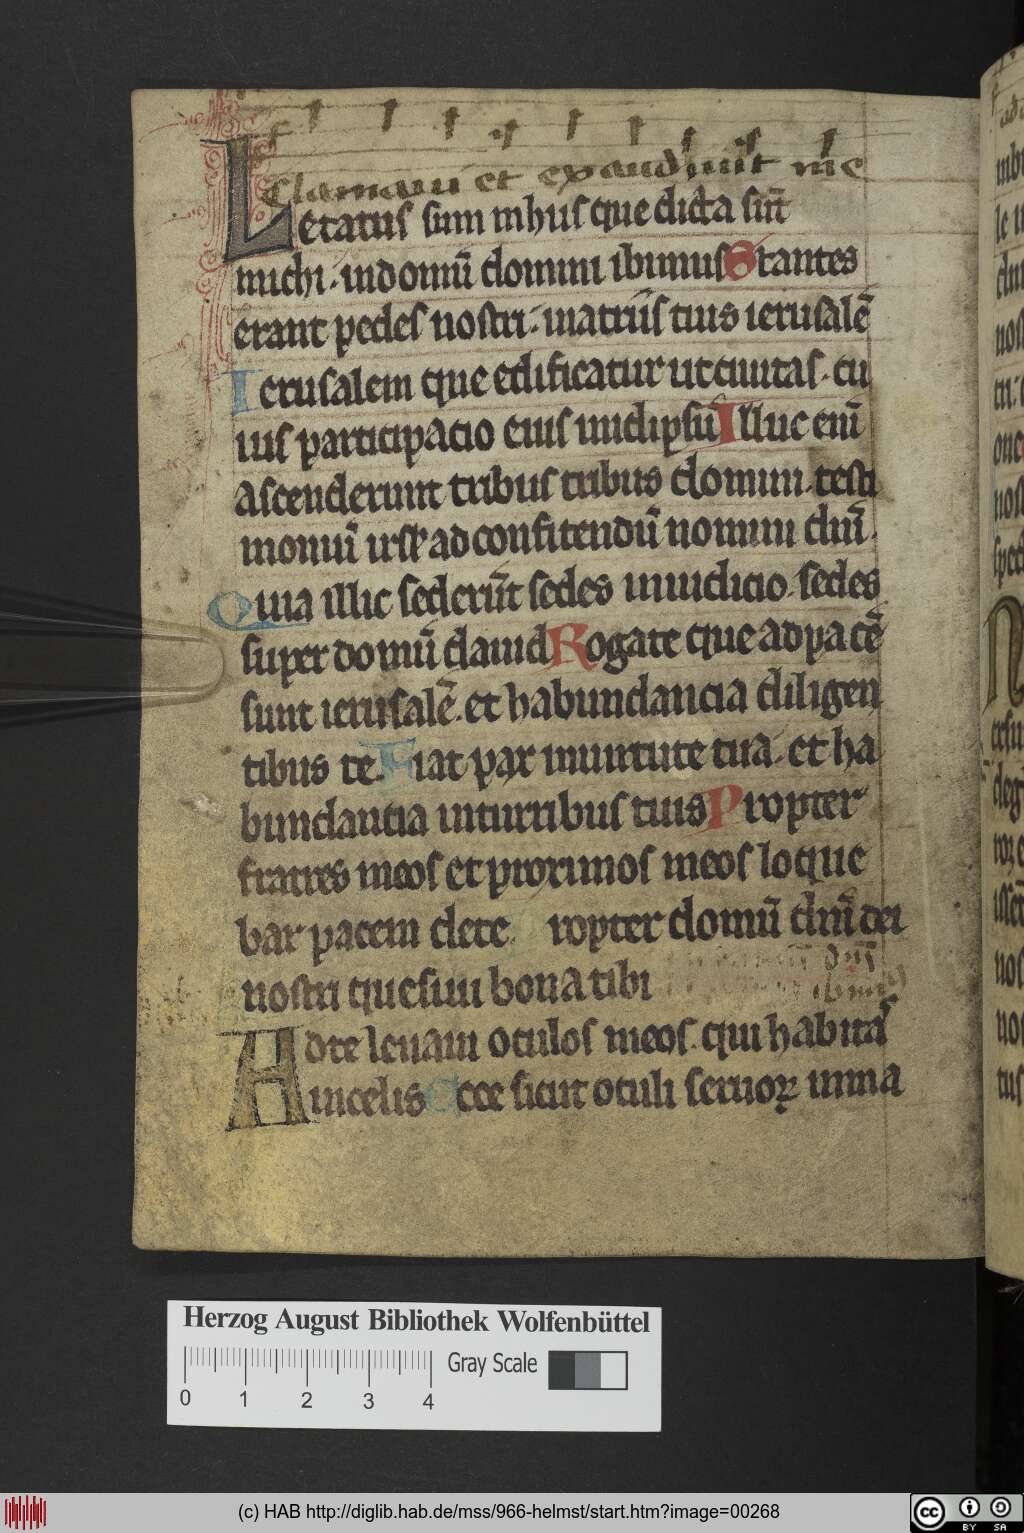 Clamaui et exaudiuit me
Letatus sum inhis que dicta sūt
michi. indomū domini ibimus Stantes
erant pedes nostri. inatriis tuis ierusalē
Ierusalem que edificatur utciuitas. cu
ius participacio eius inidipsū Illuc enī
ascenderunt tribus tribus domini. testi
moniū isrł ad confitendū nomini dnī.
Quia illic sederūt sedes iniudicio. sedes
super domū dauid Rogate que ad pacē
sunt ierusalē. et habundancia diligen
tibus te. Fiat pax inuirtute tua. et ha
bundantia inturribus tuis Propter
fratres meos et proximos meos loque
bar pacem dete. Propter domū dnī dei
nostri quesiui bona tibi
Adte leuaui oculos meos. qui habitas
incelis Ecce sicut oculi seruoꝝ inma
Herzog August Bibliothek Wolfenbüttel
Gray Scale
0 1 2 3 4
(c) HAB http://diglib.hab.de/mss/966-helmst/start.htm?image=00268
cc BY SA